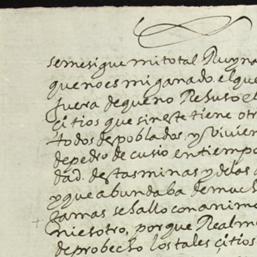 semesigue mi total Ruyna
que no es mi ganado el que
fuera de que no Resulto el
çitios que sin este tiene otr
todos despoblados, y Viviend
de pedro de cusio en tiempo
dad. destas minas y de las
y que abundaba de much
zamas se hallo con anime
nie sotro, porque Realme
de probecho los tales çitios